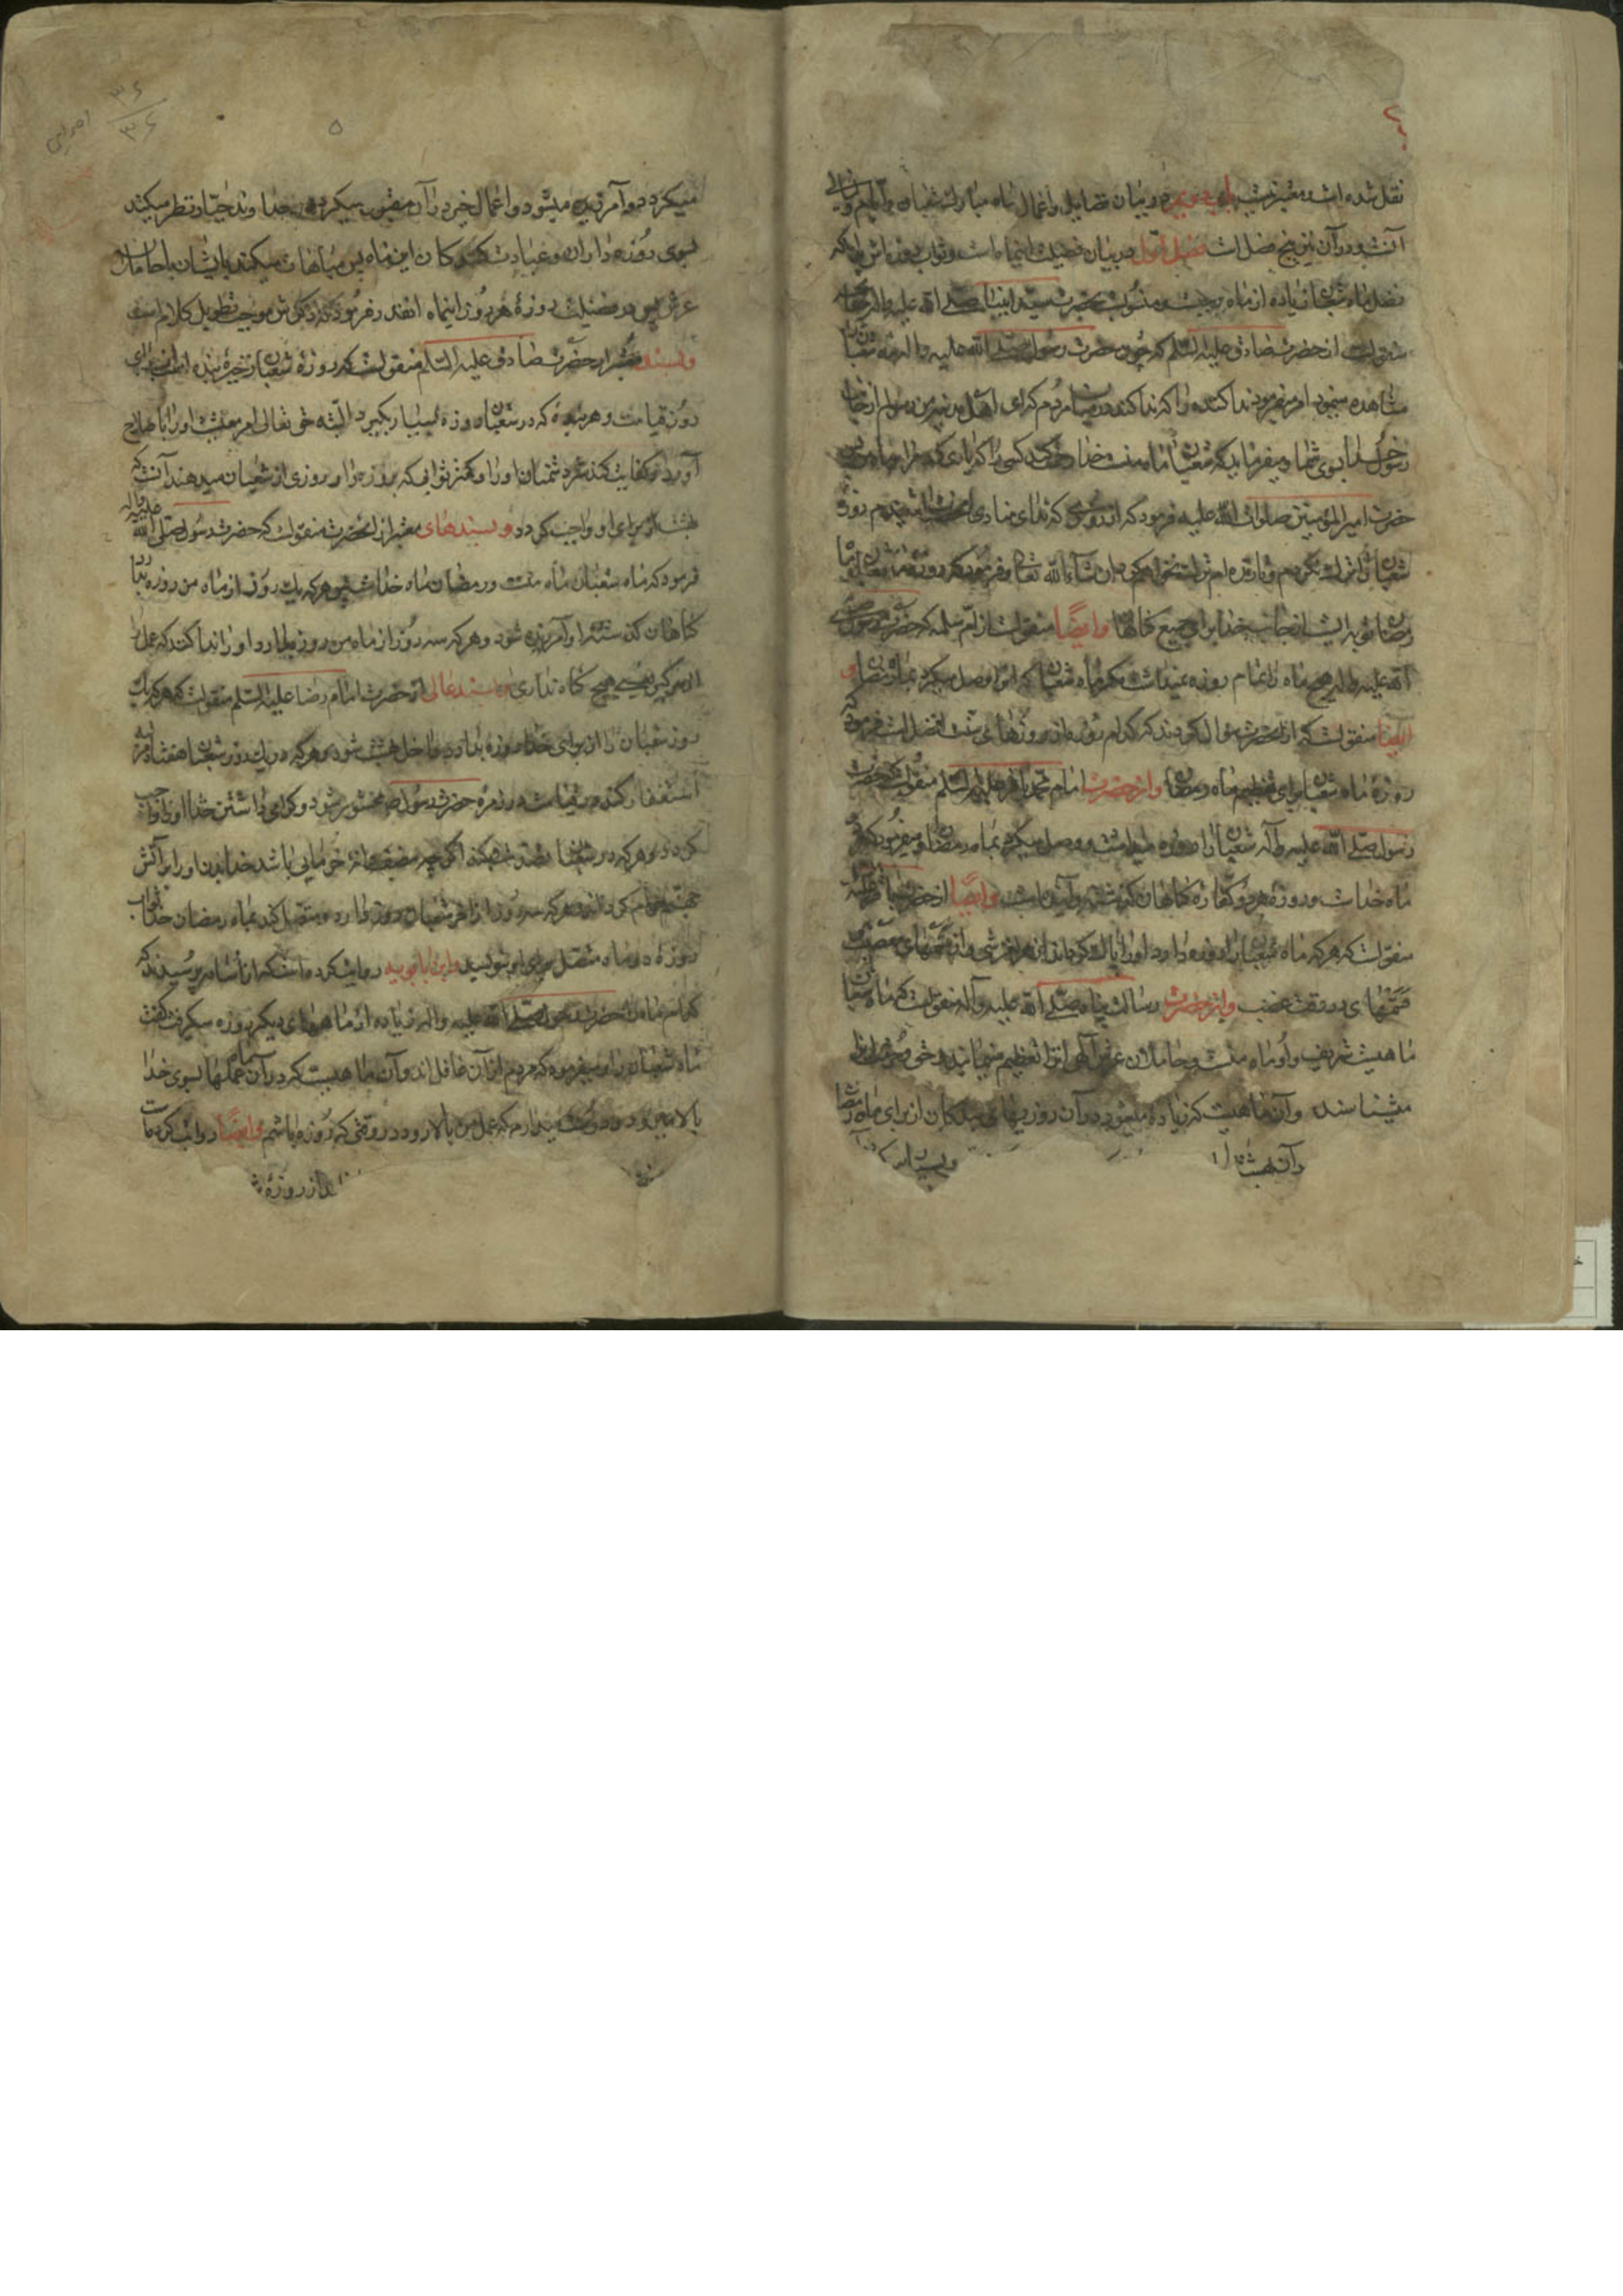 نقل شده است معتبر نیست باب دویم در بیان فضایل و اعمال ماه مبارک شعبان و ایام و لیالی
آنست و در آن نیز پنج فصل است فصل اول در بیان فضیلت اینماه است و ثواب روزه اش بدانکه
فضل ماه شعبان زیاده از ماه رجبست و منسوب بحضرت سید انبیا صلی الله علیه واله
منقولست از حضرت صادق علیه السلم که چون حضرت رسول صلی الله علیه واله ماه شعبان
مشاهده مینمود امر میفرمود ندا کننده را که ندا کند در میان مردم که ای اهل مدینه من رسولم از جانب
رسول خدا بسوی شما و میفرماید که شعبان ماه منست خدا رحمت کند کسی را که یاری کند مرا بر ماه من
حضرت امیر المؤمنین صلوات الله علیه فرمود که از روزی که ندای منادی شنیدم روزه
شعبان را ترک نکردم و تا زنده ام ترک نخواهم کرد ان شاء الله تعالی و فرمود که روزه ماه شعبان و ماه
رمضان توبه ایست از جانب خدا برای جمیع گناهها وایضا منقولست از ام سلمه که حضرت رسول صلی
الله علیه واله هیچ ماه را تمام روزه نمیداشت مگر ماه شعبان که انرا وصل میکرد بماه رمضان و
ایضا منقولست که از انحضرت سؤال کردند که کدام روزه از روزهای سنت افضل است فرمود که
روزهٔ ماه شعبان برای تعظیم ماه رمضان و از حضرت امام محمد باقر علیه السلم منقولست که حضرت
رسول صلی الله علیه وآله شعبان را روزه میداشت و وصل میکرد بماه رمضان و میفرمود که هر دو
ماه خداست و روزهٔ هر دو کفارهٔ گناهان گذشته و آینده است وایضا از حضرت
منقولست که هر که ماه شعبان را روزه دارد او را پاک گرداند از هر لغزشی و از
قسمهای در وقت غضب و از حضرت رسالت پناه صلی الله علیه وآله منقولست که ماه شعبان
ماهیست شریف و او ماه منست و حاملان عرش الهی انرا تعظیم مینمایند و حق و حرمت انرا
میشناسند و آن ماهیست که زیاده میشود در آن روزیهای بندگان از برای ماه رمضان
و زینت میکنند در آن بهشتها را
میگردد و آمرزیده میشود و اعمال خیر در آن مقبول میگردد و خداوند جبار نظر میکند
بسوی روزه داران و عبادت کنندگان این ماه پس مباهات میکند بایشان با حاملان
عرش پس در فضیلت روزهٔ هر روز اینماه انقدر فرمود که ذکرش موجب تطویل کلام است
و بسند معتبر از حضرت صادق علیه السلم منقولست که روزهٔ شعبان ذخیرهٔ بنده است برای
روز قیامت و هر بنده که در شعبان روزه بسیار بگیرد البته حق تعالی امر معیشت او را باصلاح
آورد و کفایت کند شر دشمنان او را و کمتر ثوابی که بروزه دار روزی از شعبان میدهند آنست که
بهشت از برای او واجب گردد و بسندهای معتبر از انحضرت منقولست که حضرت رسول صلی الله علیه واله
فرمود که ماه شعبان ماه منست و رمضان ماه خداست پس هر که یک روز از ماه من روزه بدارد
گناهان گذشته او آمرزیده شود و هر که سه روز از ماه من روزه بدارد او را ندا کنند که عمل را
از سر گیر هیچ گناه نداری و بسند عالی از حضرت امام رضا علیه السلم منقولست که هر که یک
روز شعبان را از برای خدا روزه بدارد داخل بهشت شود و هر که در یک روز شعبان هفتاد مرتبه
استغفار کند در قیامت در زمرهٔ حضرت رسول ص محشور شود و گرامی داشتن خدا او را واجب
گردد و هر که در شعبان تصدق بکند اگر چه بنصف دانهٔ خرمایی باشد خدا بدن او را بر آتش
جهنم حرام گرداند و هر که سه روز از آخر شعبان روزه دارد و متصل کند بماه رمضان خدا ثواب
روزه دو ماه متصل برای او بنویسد و ابن بابویه روایت کرده است که از اسامه پرسیدند که
کدام ماه را حضرت رسول صلی الله علیه واله زیاده از ماههای دیگر روزه میگرفت گفت
ماه شعبان را و میفرمود که مردم از آن غافل اند و آن ماهیست که در آن ماه عملها بسوی خدا
بالا میرود و دوست میدارم که عمل من بالا رود در وقتی که روزه باشم وایضا روایت کرده است
از روزهٔ